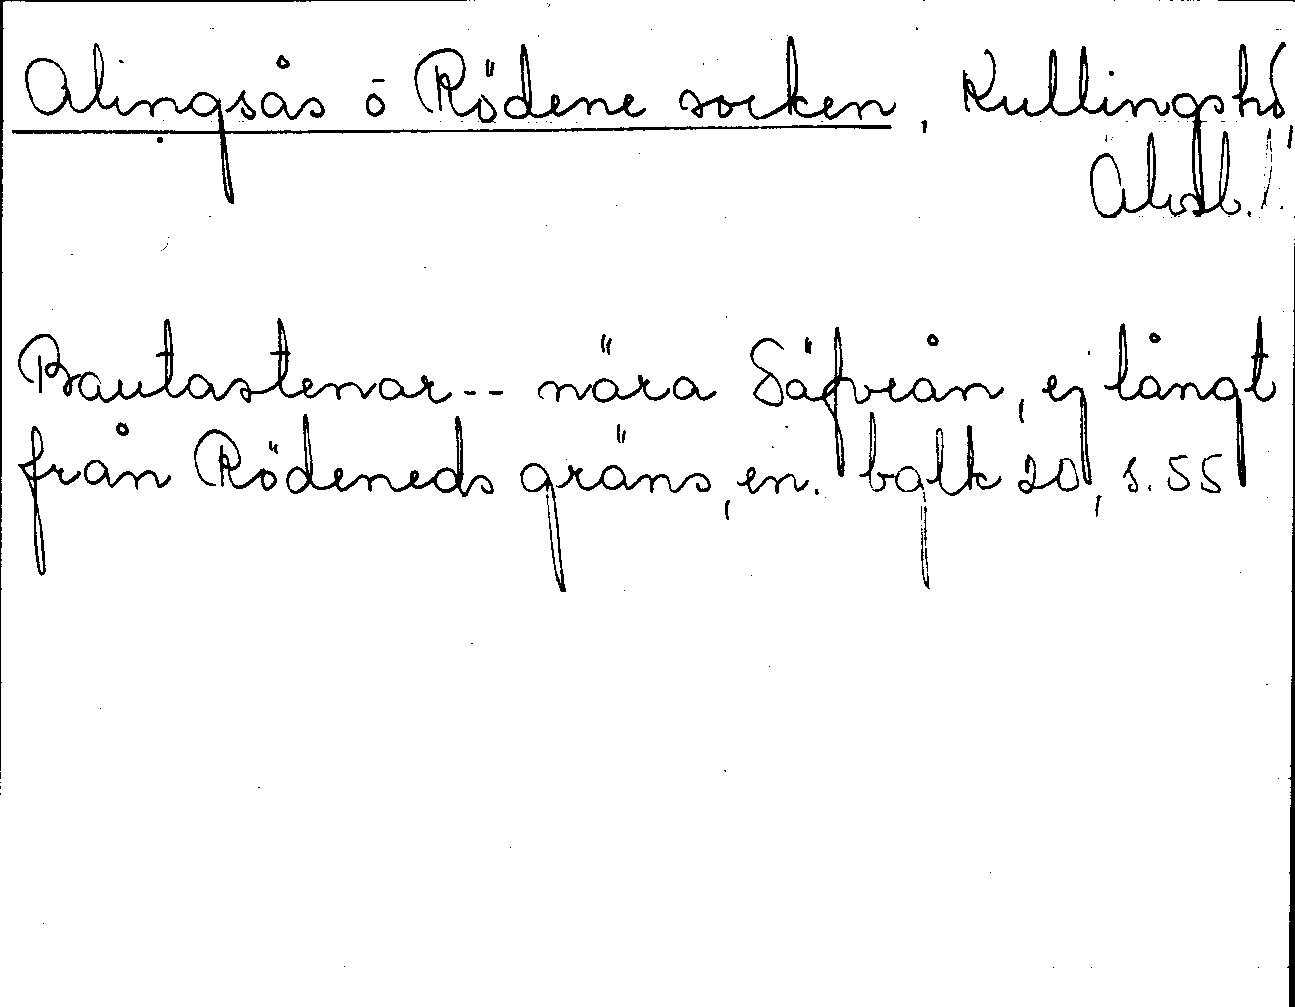 Alingsås ō Rödene socken, Kullings hd,
Älvsb. l.
Bautastenar -- nära Säfveån, ej långt
från Rödeneds gräns, en. balk 20, s. 55